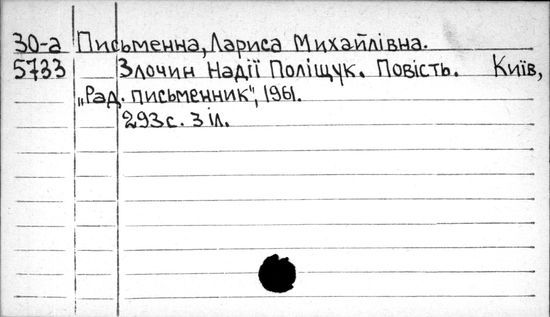 30-а Письменна, Лариса Михайлівна.
5733 Злочин Надії Поліщук. Повість. Київ,
„Рад. письменник", 1961.
293 с. з іл.